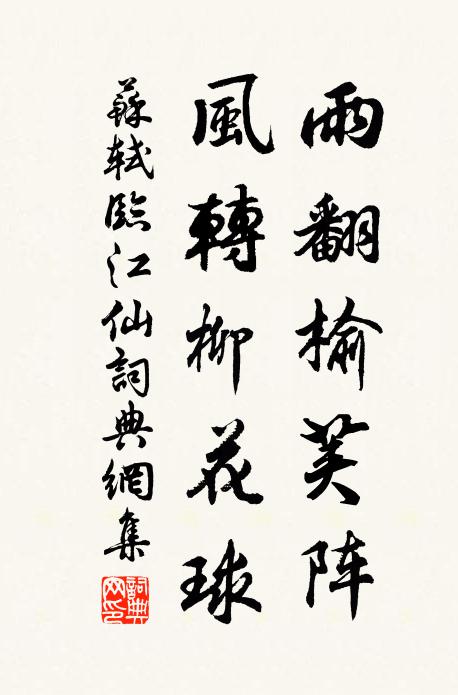 雨翻榆荚阵
風轉柳花球
蘇軾臨江仙詞典網集
詞典网印